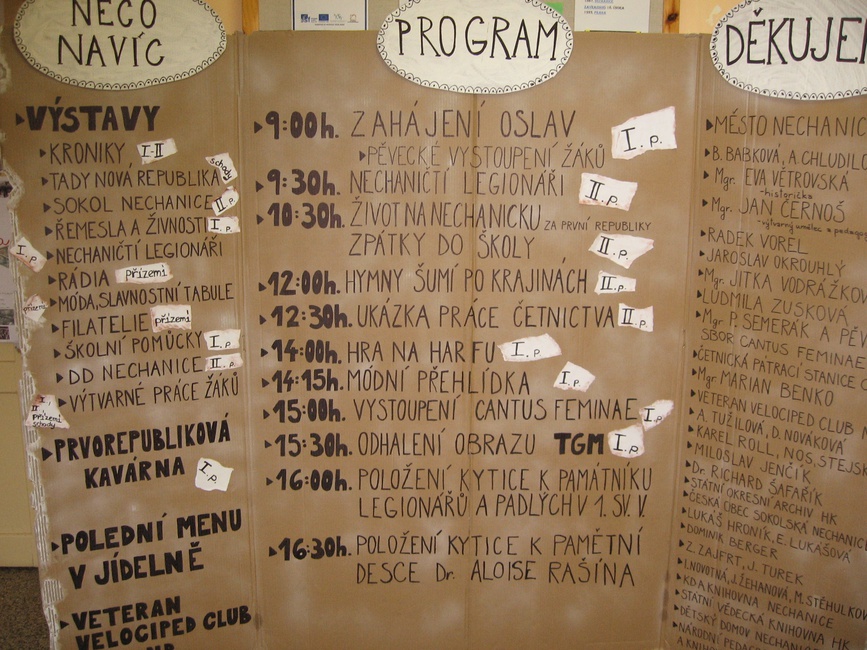 NĚCO
NAVÍC
VÝSTAVY
KRONIKY, I-II
TADY NOVÁ REPUBLIKA schody
SOKOL NECHANICE II.p.
ŘEMESLA A ŽIVNOSTI I.p.
I.p. NECHANIČTÍ LEGIONÁŘI
RÁDIA přízemí
MÓDA, SLAVNOSTNÍ TABULE
FILATELIE přízemí
ŠKOLNÍ POMŮCKY I.p.
DD NECHANICE II.p.
VÝTVARNÉ PRÁCE ŽÁKŮ
přízemí
schody
PRVOREPUBLIKOVÁ
KAVÁRNA I.p.
POLEDNÍ MENU
V JÍDELNĚ
VETERAN
VELOCIPED CLUB
PROGRAM
9:00h. ZAHÁJENÍ OSLAV I.p.
PĚVECKÉ VYSTOUPENÍ ŽÁKŮ
9:30h. NECHANIČTÍ LEGIONÁŘI II.p.
10:30h. ŽIVOT NA NECHANICKU ZA PRVNÍ REPUBLIKY
ZPÁTKY DO ŠKOLY II.p.
12:00h. HYMNY ŠUMÍ PO KRAJINÁCH II.p.
12:30h. UKÁZKA PRÁCE ČETNICTVA II.p.
14:00h. HRA NA HARFU I.p
14:15h. MÓDNÍ PŘEHLÍDKA I.p.
15:00h. VYSTOUPENÍ CANTUS FEMINAE I.p.
15:30h. ODHALENÍ OBRAZU TGM I.p.
16:00h. POLOŽENÍ KYTICE K PAMÁTNÍKU
LEGIONÁŘŮ A PADLÝCH V 1. SV. V.
16:30h. POLOŽENÍ KYTICE K PAMĚTNÍ
DESCE Dr. ALOISE RAŠÍNA
DĚKUJEM
MĚSTO NECHANIC
B. BABKOVÁ, A. CHLUDILO
Mgr. EVA VĚTROVSKÁ
-historička
Mgr. JAN ČERNOŠ
-výtvarný umělec a pedagog
RADEK VOREL
JAROSLAV OKROUHLÝ
Mgr. JITKA VODRÁŽKO
LUDMILA ZUSKOVÁ
Mgr. P. SEMERÁK A PĚV
SBOR CANTUS FEMINAE
ČETNICKÁ PÁTRACÍ STANICE
Mgr. MARIAN BENKO
VETERAN VELOCIPED CLUB N
A. TUŽILOVÁ, D. NOVÁKOVÁ
KAREL ROLL, NOS, STEJS
MILOSLAV JENČÍK
Dr. RICHARD ŠAFAŘÍK
STÁTNÍ OKRESNÍ ARCHIV HK
ČESKÁ OBEC SOKOLSKÁ NECHANIC
LUKÁŠ HRONÍK, E. LUKÁŠOVÁ
DOMINIK BERGER
Z. ZAJFRT, J. TUREK
I. NOVOTNÁ, J. ŽEHANOVÁ, M. STĚHULKO
KD A KNIHOVNA NECHANICE
STÁTNÍ VĚDECKÁ KNIHOVNA HK
DĚTSKÝ DOMOV NECHANIC
NÁRODNÍ PEDAG
A KNIHO